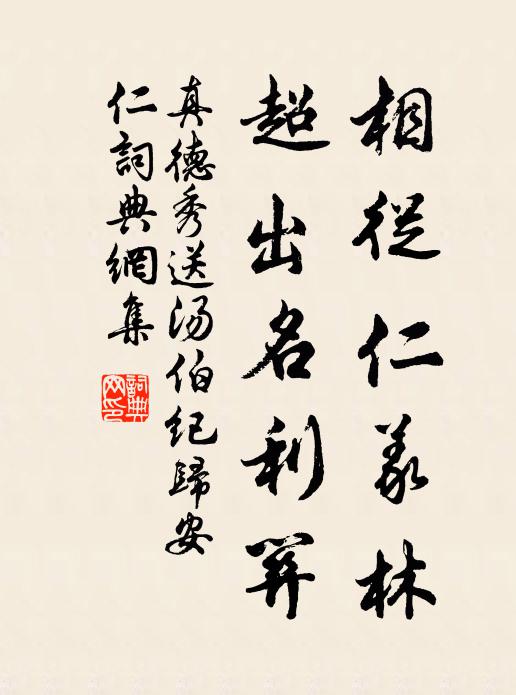 相從仁義林
超出名利穽
真德秀送湯伯紀歸安
仁詞典網集
詞典
网印